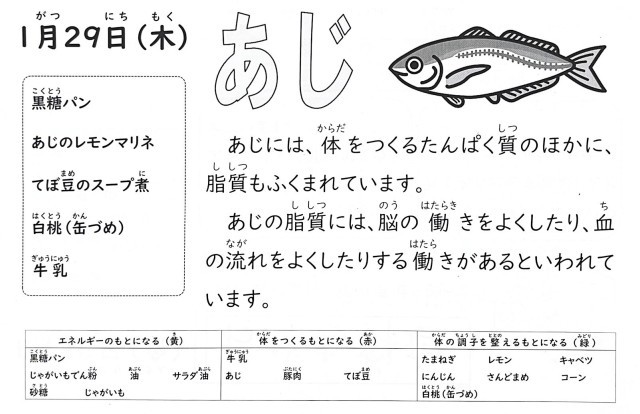 1月29日(木)
あじ
黒糖パン
あじのレモンマリネ
てぼ豆のスープ煮
白桃(缶づめ)
牛乳
あじには、体をつくるたんぱく質のほかに、
脂質もふくまれています。
あじの脂質には、脳の働きをよくしたり、血
の流れをよくしたりする働きがあるといわれて
います。
エネルギーのもとになる(黄)
黒糖パン
じゃがいもでん粉 油 サラダ油
砂糖 じゃがいも
体をつくるもとになる(赤)
牛乳
あじ 豚肉 てぼ豆
体の調子を整えるもとになる(緑)
たまねぎ レモン キャベツ
にんじん さんどまめ コーン
白桃(缶づめ)